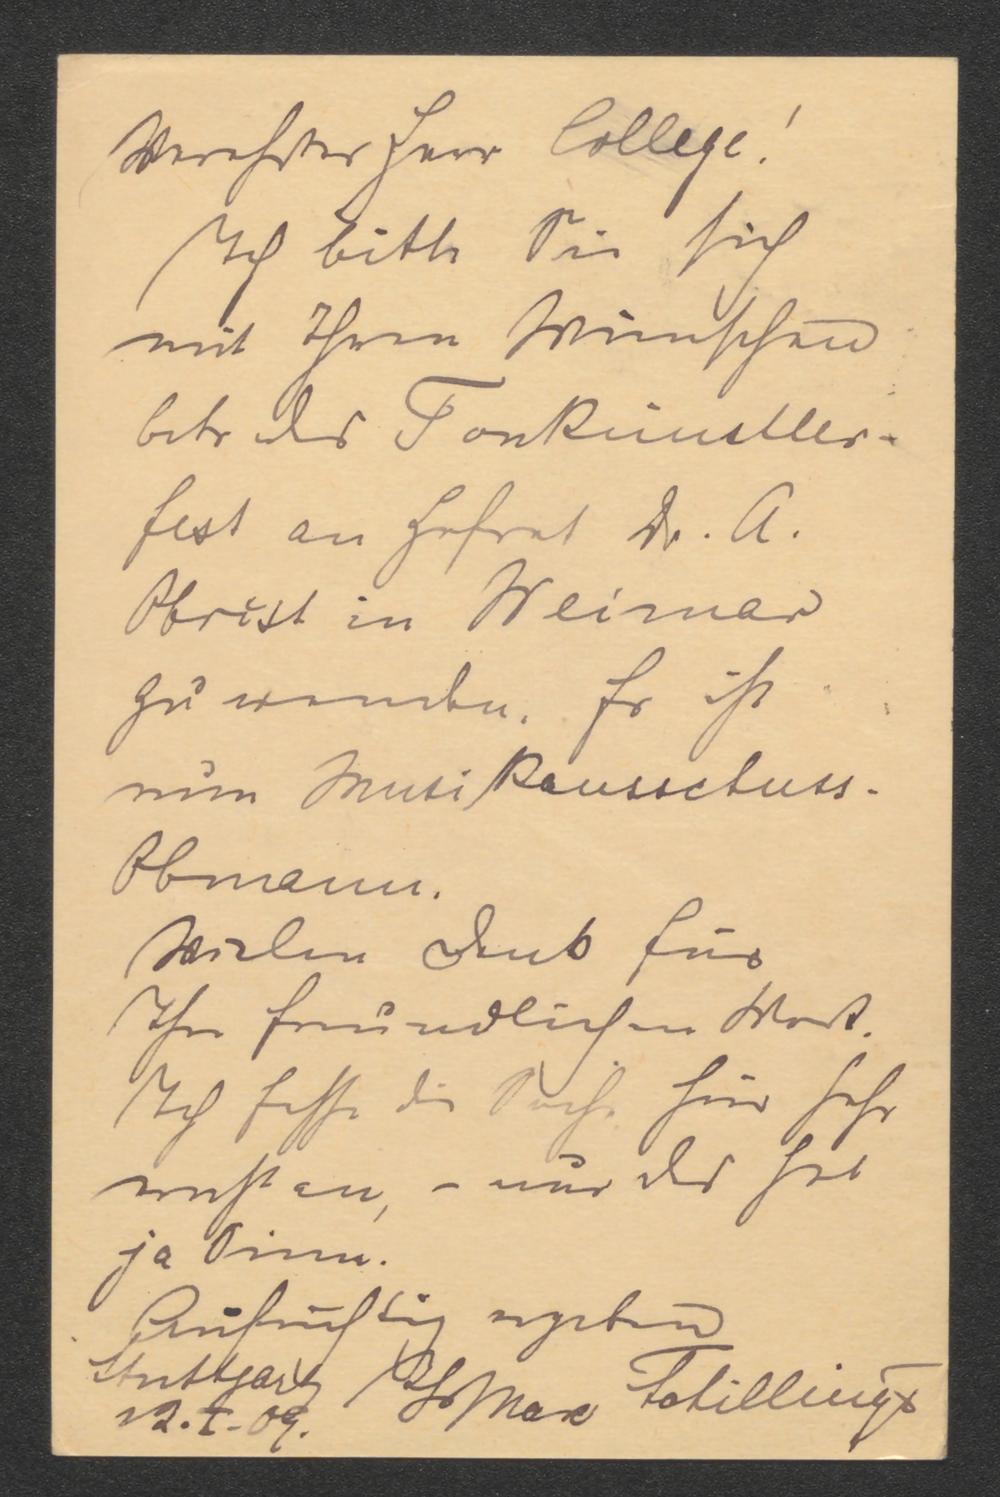 Verehrter Herr College!
Ich bitte Sie sich
mit Ihren Wünschen
betr das Tonkünstler-
fest an Hofrat Dr. A.
Obrist in Weimar
zu wenden. Er ist
nun Musikausschuss-
Obmann.
Vielen Dank für
Ihr freundlichen Wort.
Ich fasse die Sache hier sehr
ernst an, – nur das hat
ja Sinn.
Aufrichtig ergeben
Stuttgart Ihr Max Schillings
12.I.09.